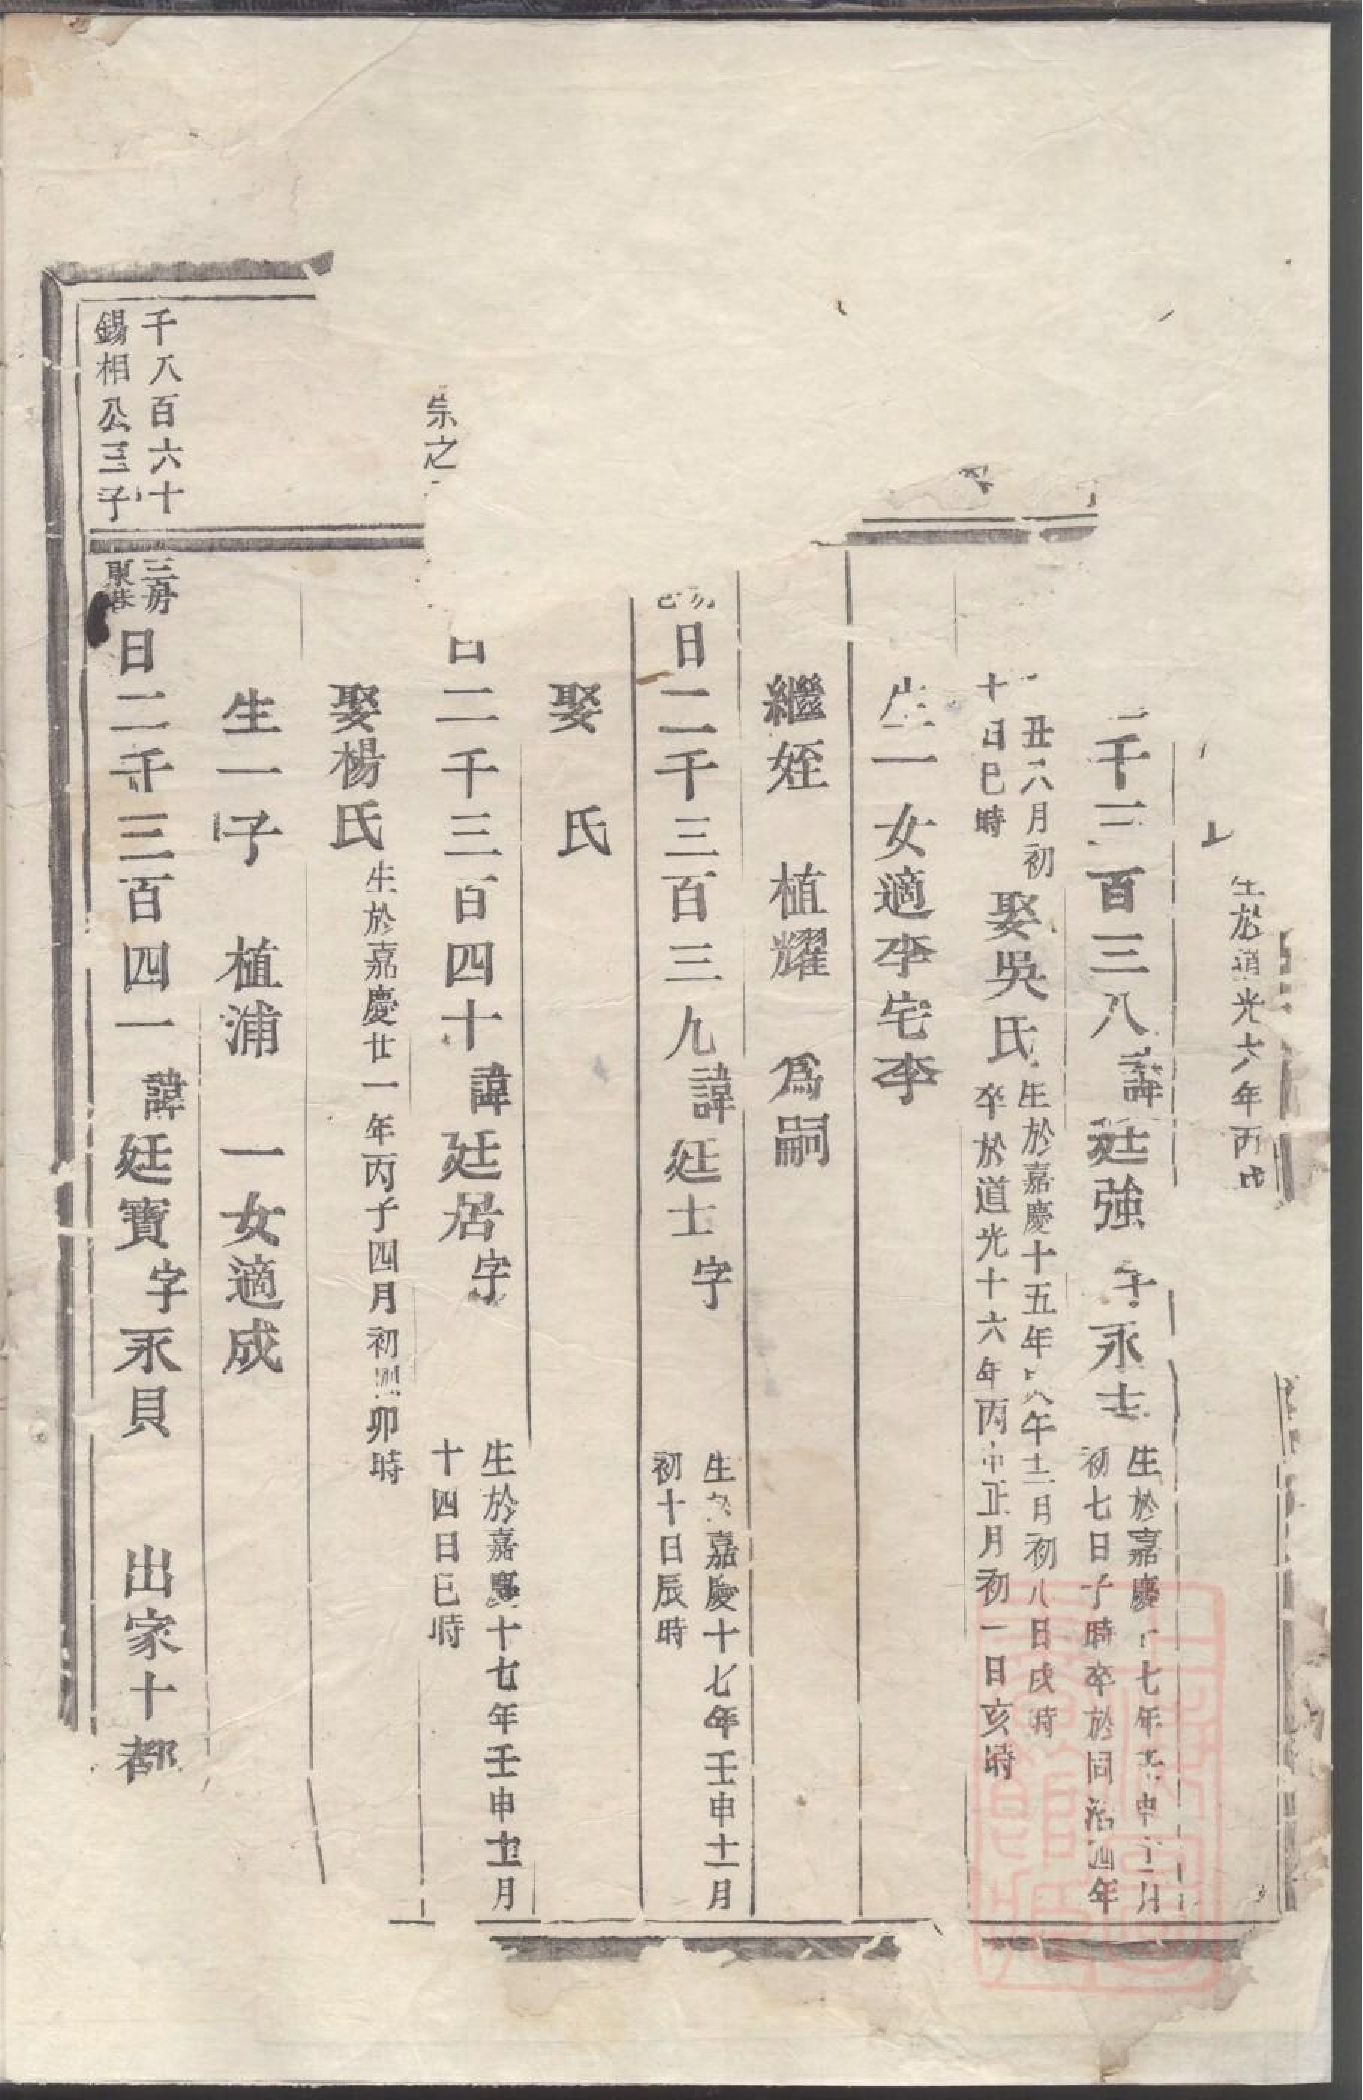 生於道光六年丙戌
千三百三八諱廷強字永士
生於嘉慶十七年壬申十二月
初七日子時卒於同治四年
丑六月初
十日巳時
娶吳氏
生於嘉慶十五年午十二月初八日戌時
卒於道光十六年丙申正月初一日亥時
生一女適李宅李
繼姪 植耀 為嗣
日二千三百三九諱廷士字
生於嘉慶十七年壬申十二月
初十日辰時
娶 氏
宗之
日二千三百四十諱廷居字
生於嘉慶十七年壬申十二月
十四日巳時
娶楊氏
生於嘉慶廿一年丙子四月初四卯時
生一子 植浦 一女適成
千八百六十
錫相公三子
三房
東巷
日二千三百四一諱廷寶字永貝 出家十都